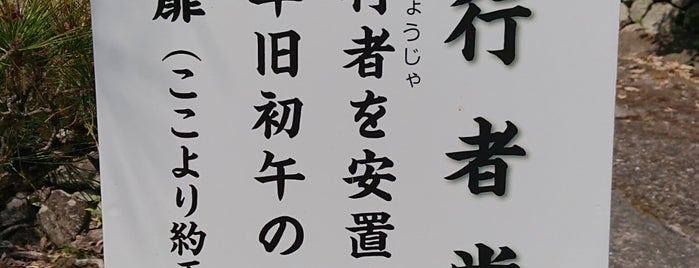 行者
ょうじゃ
行者を安置
年旧初午の
扉（ここより約